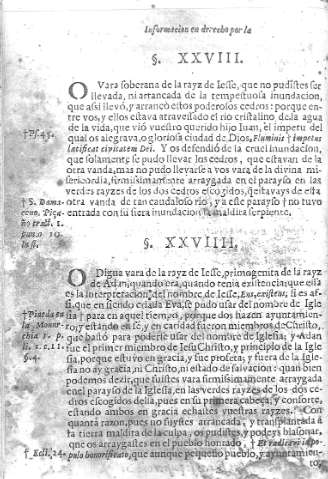 Informacion en derecho por la
§. XXVIII.
O Vara soberana de la rayz de Iesse, que no pudistes ser
llevada, ni arrancada de la tempestuosa inundacion,
que assi llevó, y arrancó estos poderosos cedros: porque entre
vos, y ellos estava atravessado el rio cristalino de la agua
de la vida, que vió vuestro querido hijo Iuan, el impetu del
†Ps. 45.
qual os alegrava, o gloriosa ciudad de Dios, Fluminis † impetus
latificat civitatem Dei. Y os defendió de la cruel inundacion,
que solamente se pudo llevar los cedros, que estavan de la
otra vanda, mas no pudo llevarse a vos vara de la divina misericordia,
firmissimamente arraygada en el parayso en las
verdes rayzes de los dos cedros escogidos, q̃ estavays de esta
† S. Damascen.
otra vanda de tan caudaloso rio, y a esse parayso † no tuvo
entrada con su fiera inundacion la maldita serpiente.
§. XXVIIII.
O Digna vara de la rayz de Iesse, primogenita de la rayz
de Adan, quando era, quando tenia existencia; que essa
es la interpretacion del nombre de Iesse, Ens, existens, si es assi,
que en siendo criada Eva, se pudo usar del nombre de Iglesia
† para en aquel tiempo, porque dos hazen ayuntamiento,
y estando en se, y en caridad fueron miembros de Christo,
que bastó para poderse usar del nombre de Iglesia; y Adan
fue el primer miembro de Iesu Christo, y principio de la Iglesia,
porque estuvo en gracia, y fue profeta; y fuera de la Iglesia
no ay gracia, ni Christo, ni estado de salvacion: quan bien
podemos dezir, que fuistes vara firmissimamente arraygada
en el parayso de la Iglesia, en las verdes rayzes de los dos cedros
escogidos della, pues en su primera cabeça, y consorte,
estando ambos en gracia echastes vuestras rayzes. Con
quanta razon, pues no fuystes arrancada, y transplantada à
la tierra maldita de la culpa, os pudistes, y podeys blasonar,
que os arraygastes en el pueblo honrado † Et radicavi in populo
† Eccl. 24.
honorificato, que aunque pequeño pueblo, y ayuntamiento,